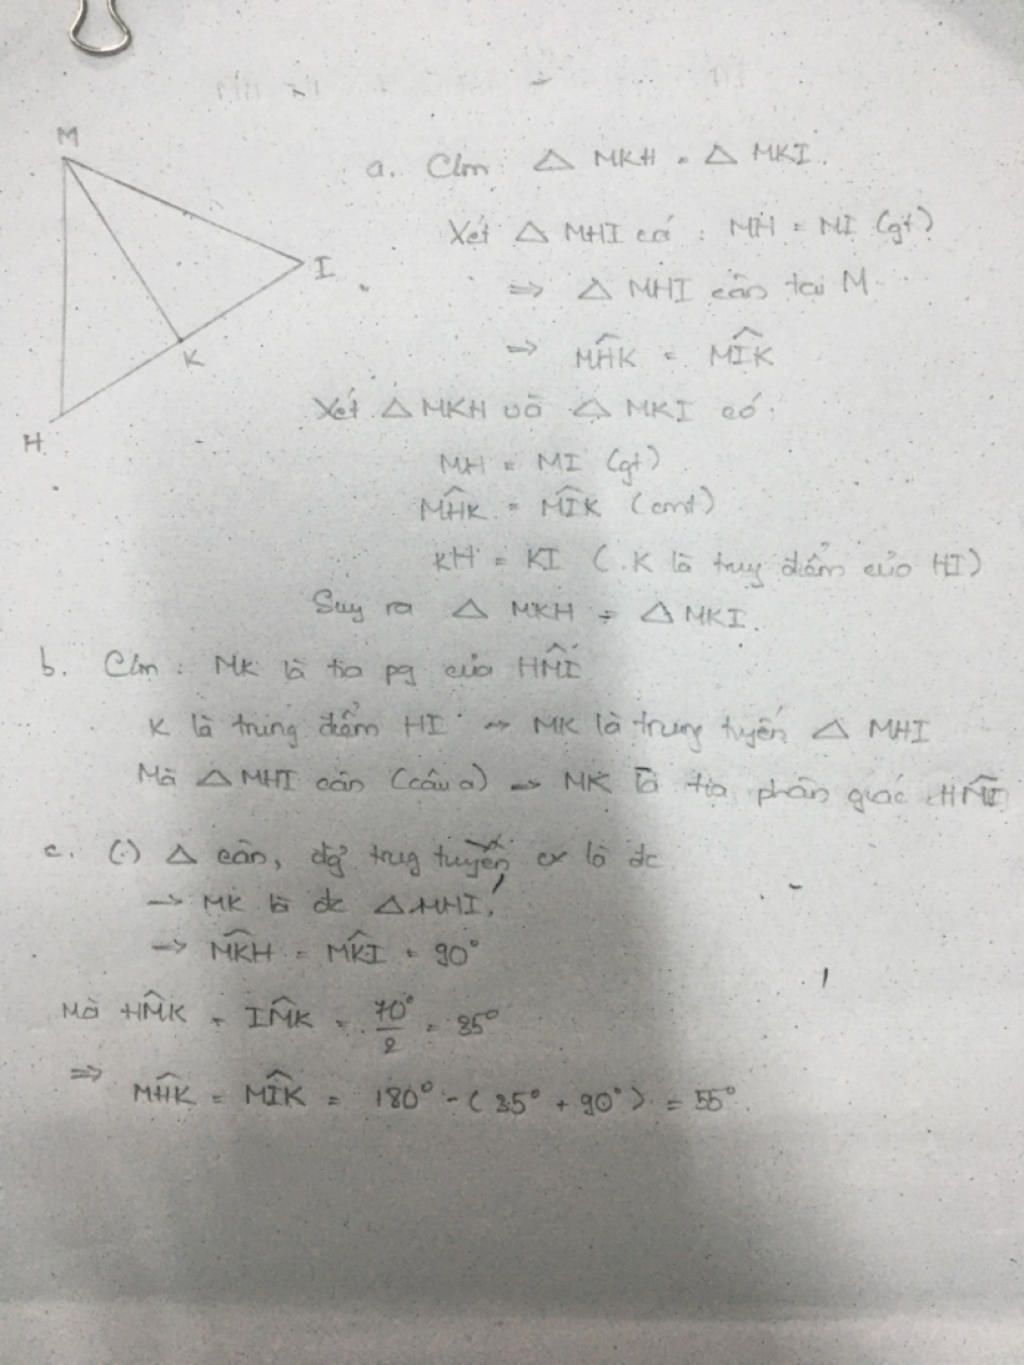 M
I
K
H
a. Clm: △ MKH = △ MKI.
Xét △ MHI có : MH = MI (gt)
=> △ MHI cân tại M
=> MĤK = MÎK
Xét △ MKH và △ MKI có:
MH = MI (gt)
MĤK = MÎK (cmt)
KH = KI (K là trug điểm của HI)
Suy ra △ MKH = △ MKI.
b. Clm : MK là tia pg của HM̂I
K là trung điểm HI -> MK là trung tuyến △ MHI
Mà △ MHI cân (câu a) -> MK là tia phân giác HM̂I
c. (.) △ cân, đg trug tuyến cx là đc
-> MK là đc △ MHI.
-> MK̂H = MK̂I = 90°
Mà HM̂K = IM̂K = 70°/2 = 35°
=> MĤK = MÎK = 180° - (35° + 90°) = 55°.